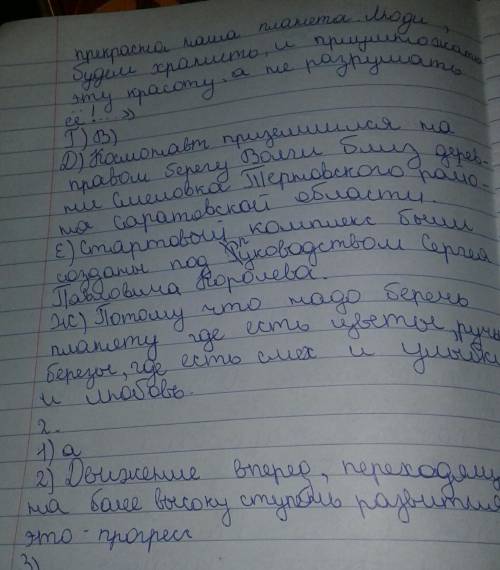 прекрасна наша планета. Люди,
будем хранить, и приумножать
эту красоту, а не разрушать
её!...»
Г) В)
Д) Космонавт приземлился на
правом берегу Волги близ дерев-
ни Смеловка Терновского райо-
на Саратовской области.
Е) Стартовый комплекс были
созданы под Руководством Сергея
Павловича Королева.
Ж) Потому что надо беречь
планету где есть цветы, ручьи
березы, где есть смех и улыбки
и любовь.
2.
1) а
2) Движение вперед, переходящ
на более высоку ступень развития
это - прогресс
3)